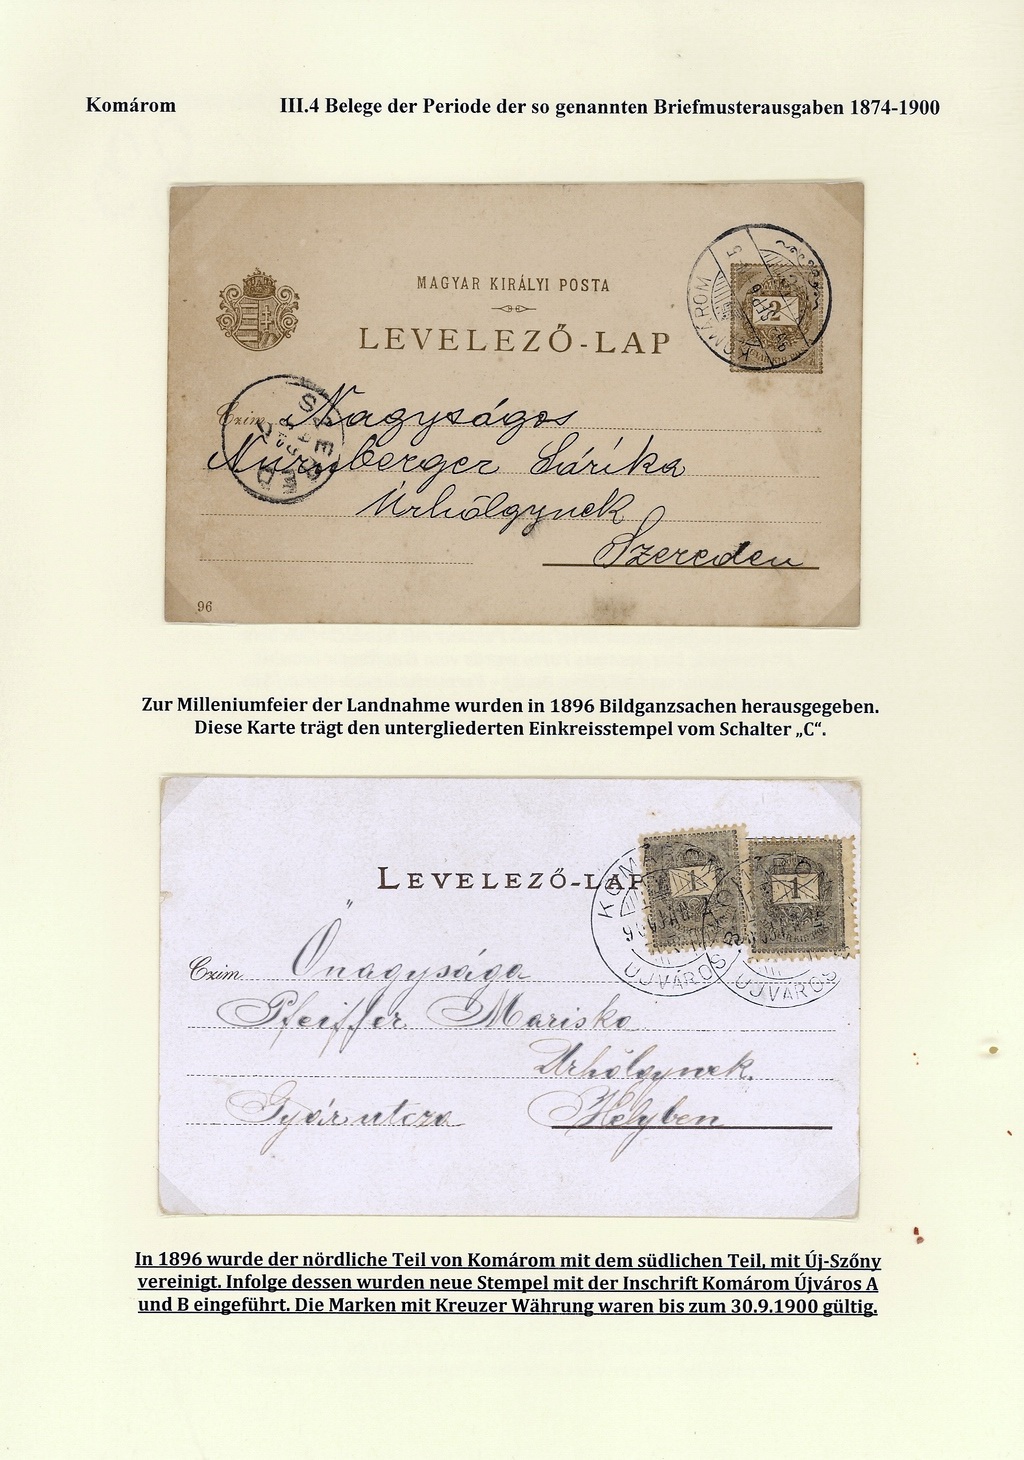 Komárom III.4 Belege der Periode der so genannten Briefmusterausgaben 1874-1900
MAGYAR KIRÁLYI POSTA
LEVELEZŐ-LAP
KOMÁROM
2
SZERED
Czim Nagyságos
Nürnberger Sárika
Úrhölgynek
Szereden
96
Zur Milleniumfeier der Landnahme wurden in 1896 Bildganzsachen herausgegeben.
Diese Karte trägt den untergliederten Einkreisstempel vom Schalter „C“.
LEVELEZŐ-LAP
1 1
KOMÁROM
UJVÁROS
UJVÁROS
Czim. Őnagysága
Pfeiffer Mariska
Urhölgynek.
Gyár utcza Helyben
In 1896 wurde der nördliche Teil von Komárom mit dem südlichen Teil, mit Új-Szőny
vereinigt. Infolge dessen wurden neue Stempel mit der Inschrift Komárom Újváros A
und B eingeführt. Die Marken mit Kreuzer Währung waren bis zum 30.9.1900 gültig.